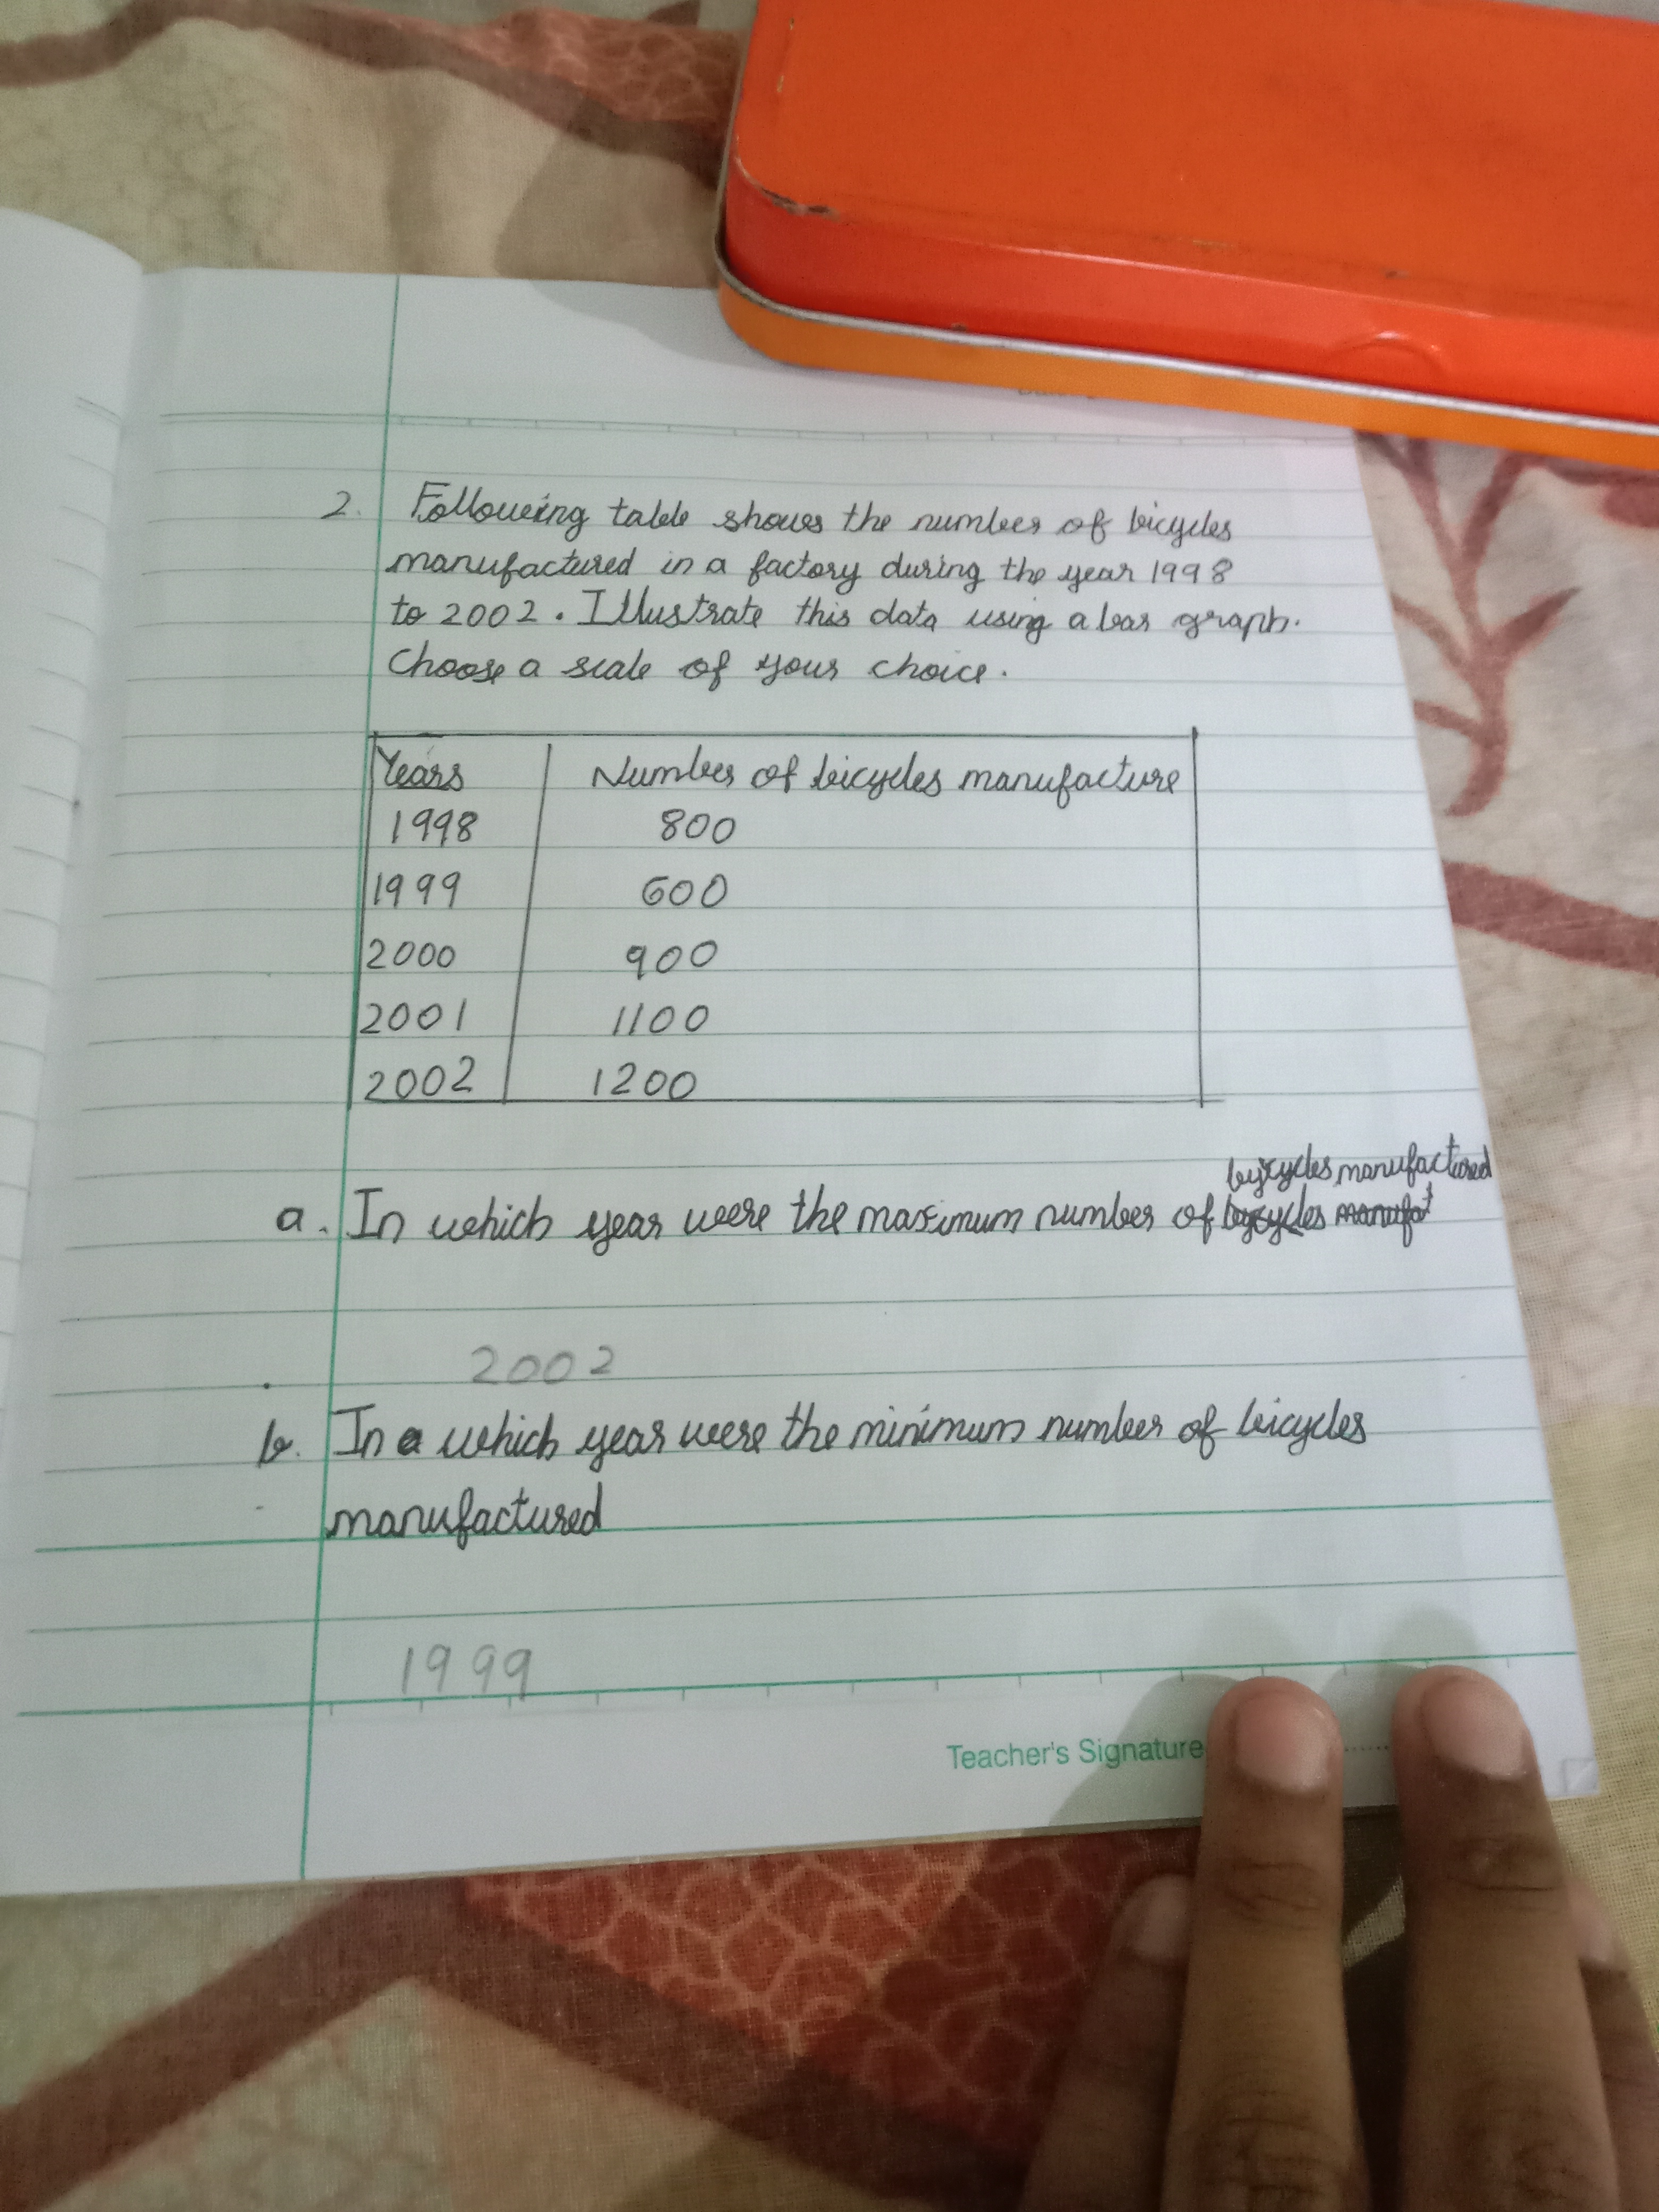 2. Following table shows the number of bicycles
manufactured in a factory during the year 1998
to 2002. Illustrate this data using a bar graph.
Choose a scale of your choice.
Years Number of bicycles manufacture
1998 800
1999 600
2000 900
2001 1100
2002 1200
bycycles manufactured
a. In which year were the maximum number of
2002
b. In a which year were the minimum number of bicycles
manufactured
1999
Teacher's Signature